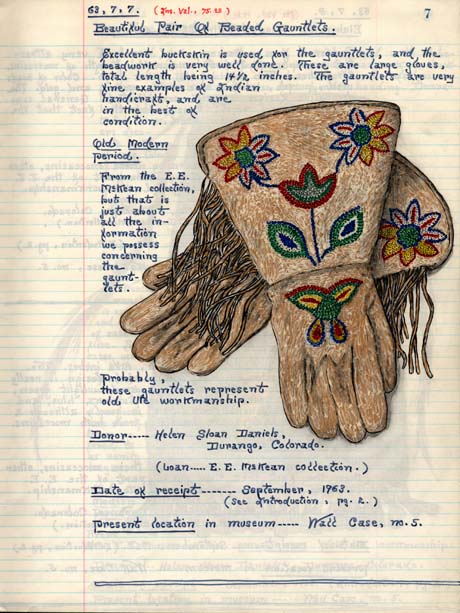 63, 7, 7. (Ins. Val., 75.00)
7
Beautiful Pair Of Beaded Gauntlets.
Excellent buckskin is used for the gauntlets, and the
beadwork is very well done. These are large gloves,
total length being 14½ inches. The gauntlets are very
fine examples of Indian
handicraft, and are
in the best of
condition.
Old Modern
period.
From the E.E.
McKean collection,
but that is
just about
all the in-
formation
we possess
concerning
the
gaunt-
lets.
Probably,
these gauntlets represent
old Ute workmanship.
Donor----- Helen Sloan Daniels,
Durango, Colorado.
(Loan..... E.E. McKean collection.)
Date of receipt------- September, 1963.
(See Introduction, pg. 2.)
Present location in museum----- Wall Case, no. 5.